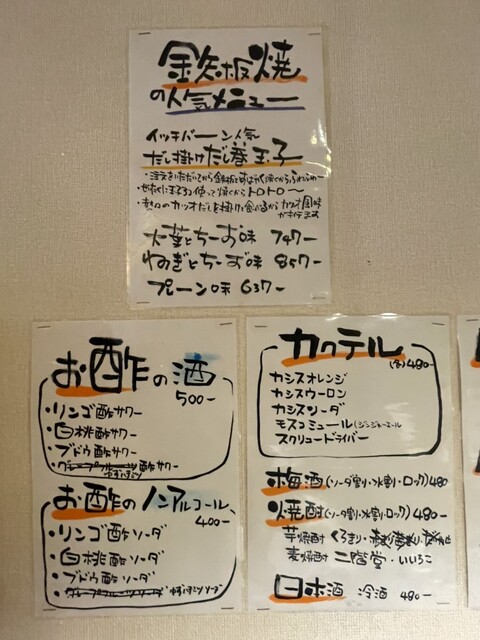 鉄板焼
の人気メニュー
イッチバーン人気
だし掛けだし巻玉子
・注文をいただいてから鉄板ですばやく焼くからふわふわー
・ぜいたくに玉子3コ使って焼くからトロトロ〜
・熱々のカツオだしを掛けて食べるからカツオ風味
がキイテます
大葉とちーず味 747-
ねぎとちーず味 857-
プレーン味 637-
お酢の酒
500-
・リンゴ酢サワー
・白桃酢サワー
・ブドウ酢サワー
酢サワー
ゆずはちみつ
お酢のノンアルコール
400-
・リンゴ酢ソーダ
・白桃酢ソーダ
・ブドウ酢ソーダ
ゆずはちみつソーダ
カクテル
(各)480-
カシスオレンジ
カシスウーロン
カシスソーダ
モスコミュール(ジンジャーエール
スクリュードライバー
梅酒(ソーダ割り・水割・ロック)480
焼酎(ソーダ割・水割・ロック)480-
芋焼酎 くろまり・
麦焼酎 二階堂・いいちこ
日本酒 冷酒 480-